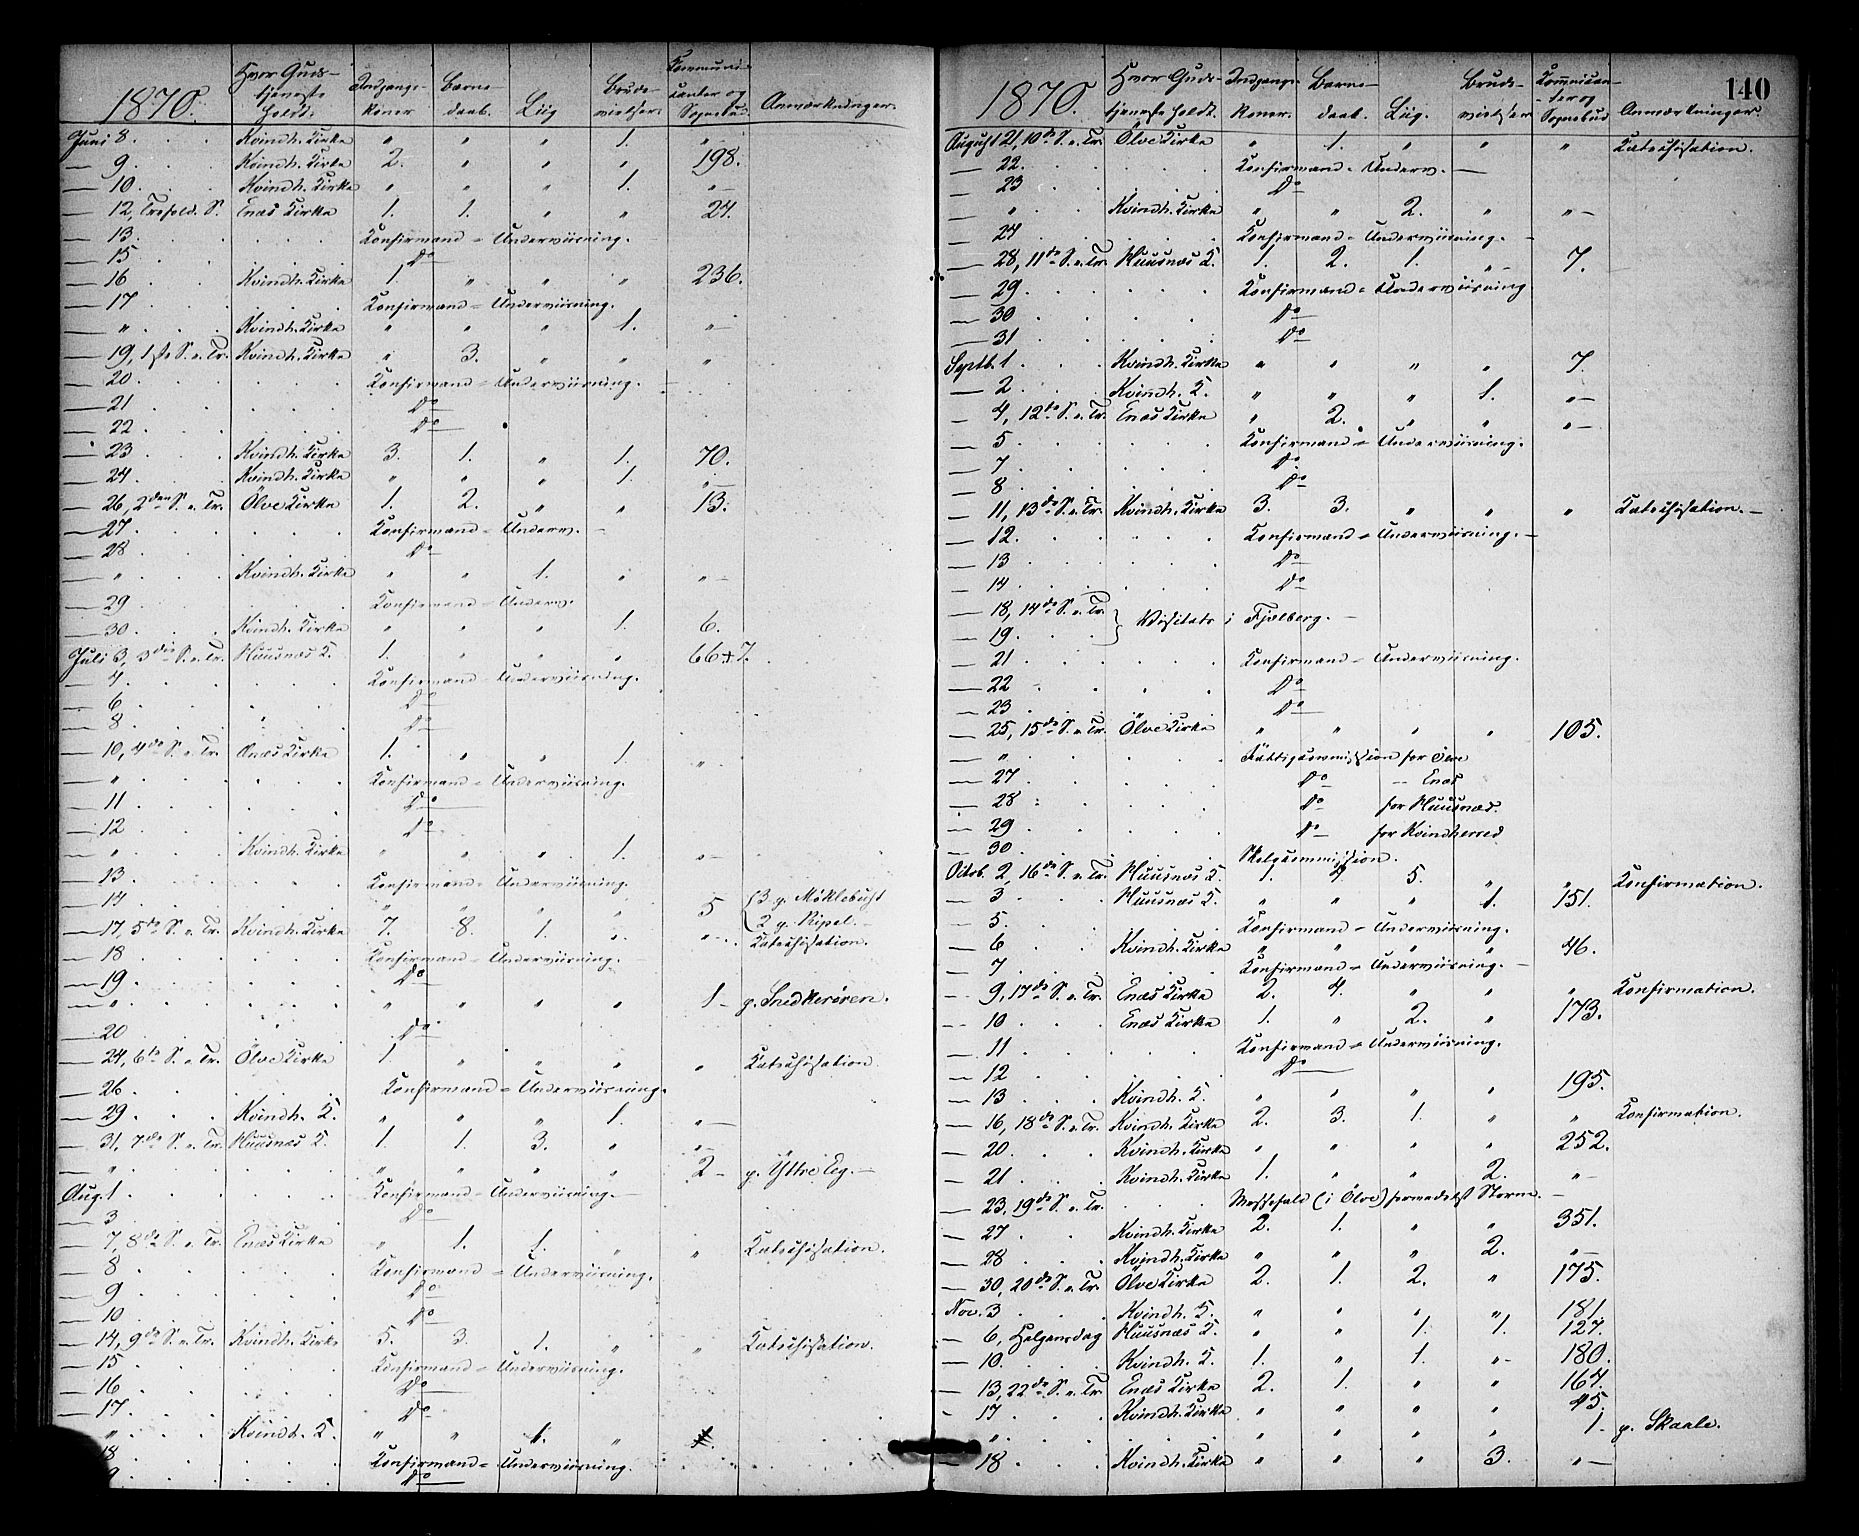 1870. Hvor Guds- tjeneste holdt. Indgangs- koner Barne- daab. Liig Brude- vielser. Kommuni- canter og Sognebud Anmærkninger.
Juni 8. Kvindh. Kirke " " " 1. "
— 9. Kvindh. Kirke 2. " " " 198.
— 10. Kvindh. Kirke " " " 1. "—
— 12, Trefold. S. Enæs Kirke 1. 1. " " 24.
— 13. Konfirmand-Underviisning.
— 15. Do
— 16 Kvindh. Kirke 1. " " " 236.
— 17 Konfirmand-Underviisning.
— " Kvindh. Kirke " " " 1. "—
— 19, 1ste S. e. Tr. Kvindh. Kirke " 3. " " "
— 20. Konfirmand-Underviisning.
— 21 Do
— 22. Do
— 23 Kvindh. Kirke 3. 1. " 1. 70.
— 24. Kvindh. Kirke " " " 1. "—
— 26, 2den S. e. Tr. Ölve Kirke 1. 2. " " 13.
— 27. Konfirmand-Underv.
— 28 Do
— " Kvindh. Kirke " " 1. " "—
— 29 Konfirmand-Underv.
— 30. Kvindh. Kirke " " " 1. 6.
Juli 3, 3die S. e. Tr. Huusnæs K. 1. " " " 66+7.
— 4. Konfirmand-Underviisning.
— 6 Do
— 8. Do
— 10, 4de S. e. Tr. Enæs Kirke 1. " " 1. "
— " Konfirmand-Underviisning.
— 11 Do
— 12 Do
— " Kvindh. Kirke " " " 1. "—
— 13. Konfirmand-Underviisning.
— 14. " " " " 5 { 3 p. Møklebust
2 p. Ripel.
— 17, 5te S. e. Tr. Kvindh. Kirke 7. 8. 1. " " Katechisation.
— 18 Konfirmand-Underviisning.
— 19. Do
— " " " " " 1 — p. Snedkerøren.
— 20 Do
— 24, 6te S. e. Tr. Ölve Kirke 1. " " " " Katechisation.
— 26 Konfirmand-Underviisning.
— 29 Kvindh. K. " " " 1. "—
— 31, 7de S. e. Tr. Huusnæs K. 1. 1. 3. " "—
— " " " " " 2 — p. Yttre Eeg.
Aug. 1 Konfirmand-Underviisning.
— 3 Do
— 7, 8de S. e. Tr. Enæs Kirke " 1. 1. " " Katechisation.
— 8 Konfirmand-Underviisning.
— 9 Do
— 10 Do
— 14, 9de S. e. Tr. Kvindh. Kirke 5. 3. 1. " " Katechisation.
— 15 Konfirmand-Underviisning.
— 16 Do
— 17. Do
— " Kvindh. K. " " 1. "
18 Konfirmand-Underviisning.
Do
140
1870. Hvor Guds- tjeneste holdt. Indgangs- koner. Barne- daab. Liig. Brude- vielser Kommunican- ter og Sognebud Anmærkninger.
August 21, 10de S. e. Tr. Ölve Kirke " 1. " " " Katechisation.
— 22. Konfirmand-Underv.
— 23 Do
— " Kvindh. Kirke " " 2. " "—
— 24 Konfirmand-Underviisning.
— 28, 11te S. e. Tr. Huusnæs K. 1. 2. 1. " 7.
— 29 Konfirmand-Underviisning
— 30 Do
— 31 Do
Septb. 1 Kvindh. Kirke " " " " 7.
— 2 Kvindh. K. " " " 1. "—
— 4, 12te S. e. Tr. Enæs Kirke " 2. " " "—
— 5 Konfirmand-Underviisning.
— 7 Do
— 8 Do
— 11, 13de S. e. Tr. Kvindh. Kirke 3. 3. " " " Katechisation.
— 12. Konfirmand-Underviisning.
— 13 Do
— 14 Do
— 18, 14de S. e. Tr. } Visitats i Fjælberg.
— 19.
— 21 Konfirmand-Underviisning.
— 22 Do
— 23 Do
— 25, 15de S. e. Tr. Ölve Kirke " " " " 105.
— " Fattigcommission for Ølve
— 27 Do — Enæs
— 28 Do for Huusnæs.
— 29 Do for Kvindherred
— 30. Skolecommission.
Octob. 2, 16de S. e. Tr. Huusnæs K. 1. 4. 5. " " Konfirmation.
— 3 Huusnæs K. " " " 1. 151.
— 5. Konfirmand-Underviisning.
— 6 Kvindh. Kirke " " " " 46.
— 7 Konfirmand-Underviisning.
— 9, 17de S. e. Tr. Enæs Kirke 2. 4. " " " Konfirmation.
— 10 Enæs Kirke 1. " 2. " 173.
— 11 Konfirmand-Underviisning.
— 12 Do
— 13 Kvindh. K. " " " " 195.
— 16, 18de S. e. Tr. Kvindh. Kirke 2. 3. 1. " " Konfirmation.
— 20. Kvindh. Kirke " " " " 252.
— 21 Kvindh. Kirke 1. " " 2. "—
— 23, 19de S. e. Tr. Messefald (i Ölve) formedelst Storm.
— 27 Kvindh. Kirke 2. 1. " " 351.
— 28 Kvindh. Kirke " " " 2. "—
— 30, 20de S. e. Tr. Ölve Kirke 2. 1. 2. " 175.
Nov. 3 Kvindh. K. " " " " 181.
— 6, Helgensdag Huusnæs K. " " 1. 1. 127.
— 10. Kvindh. K. 1. " 1. " 180.
— 13, 22de S. e. Tr. Enæs Kirke 2. 1. " " 167.
— 17 Kvindh. Kirke " " " " 45.
— " " " " " 1. p. Skaale.
— 18 Kvindh. Kirke " " " 3. "—